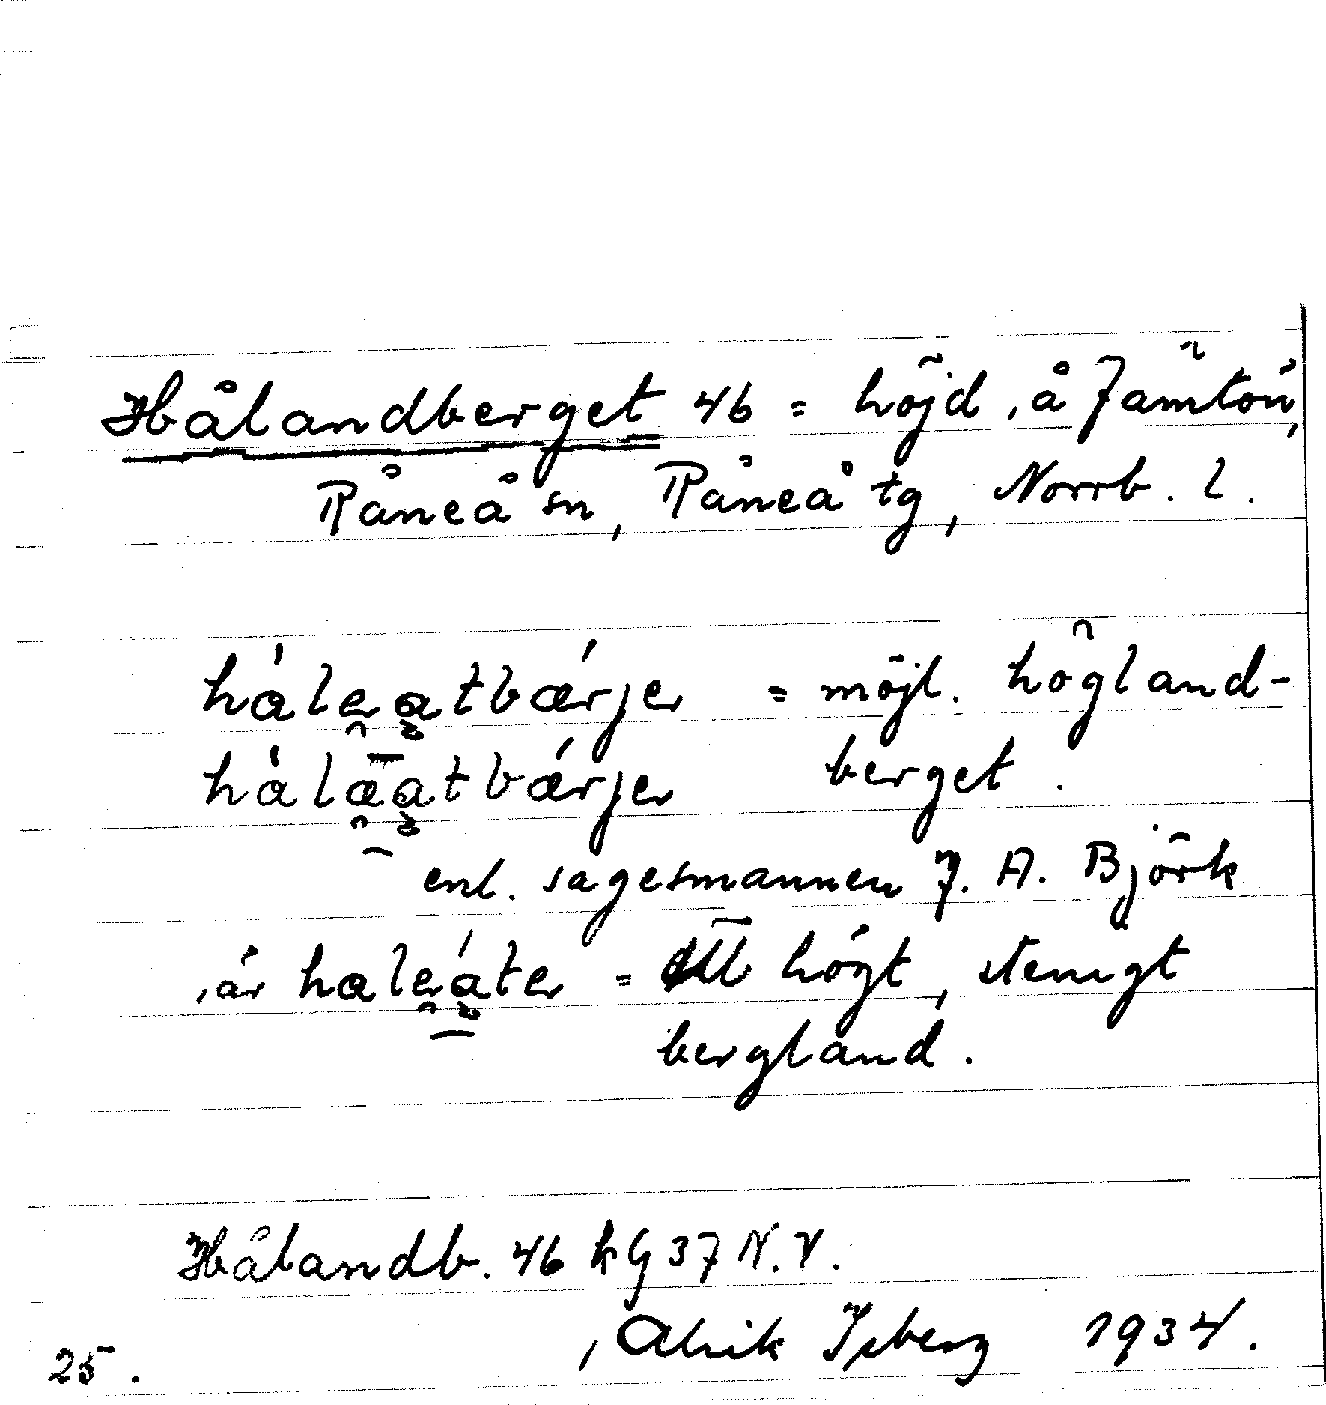 Hålandberget 46 = höjd, å Jämtön,
Råneå sn, Råneå tg, Norrb. l.
håleatbærjer = möjl. högland-
hålæatbærjer berget.
enl. sagesmannen J. A. Björk
är haleater = ett högt, stenigt
bergland.
Hålandb. 46 kG 37 N.V.
25. Alrik Isberg 1934.